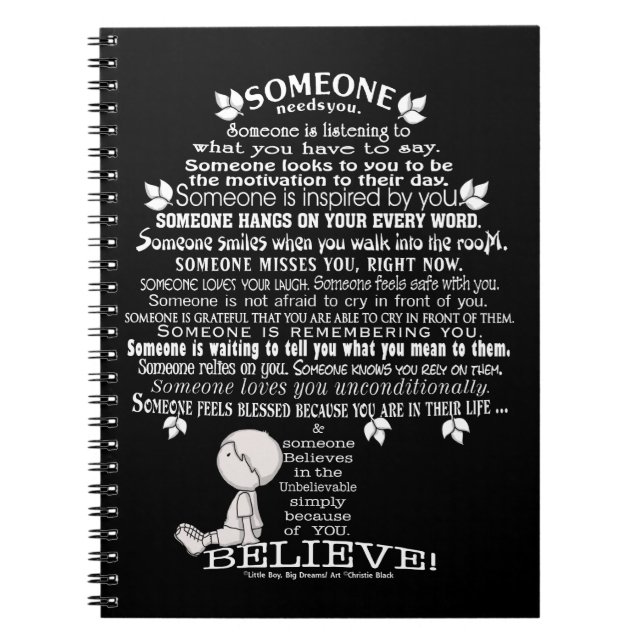 SOMEONE
needs you.
Someone is listening to
what you have to say.
Someone looks to you to be
the motivation to their day.
Someone is inspired by you.
SOMEONE HANGS ON YOUR EVERY WORD.
Someone smiles when you walk into the rooM.
SOMEONE MISSES YOU, RIGHT NOW.
SOMEONE LOVES YOUR LAUGH. Someone feels safe with you.
Someone is not afraid to cry in front of you.
SOMEONE IS GRATEFUL THAT YOU ARE ABLE TO CRY IN FRONT OF THEM.
SOMEONE IS REMEMBERING YOU.
Someone is waiting to tell you what you mean to them.
Someone relies on you. SOMEONE KNOWS YOU RELY ON THEM.
Someone loves you unconditionally.
SOMEONE FEELS BLESSED BECAUSE YOU ARE IN THEIR LIFE ...
&
someone
Believes
in the
Unbelievable
simply
because
of YOU.
BELIEVE!
©Little Boy, Big Dreams/ Art ©Christie Black